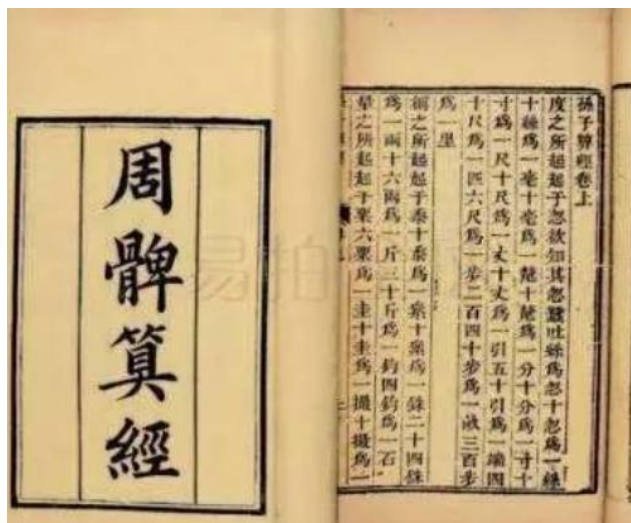 周髀算經
孫子算經卷上
度之所起起于忽欲知其忽蠶吐絲爲忽十忽爲一絲
十絲爲一毫十毫爲一釐十釐爲一分十分爲一寸十
寸爲一尺十尺爲一丈十丈爲一引五十引爲一端四
十尺爲一匹六尺爲一步二百四十步爲一畝三百步
爲一里
稱之所起起于黍十黍爲一絫十絫爲一銖二十四銖
爲一兩十六兩爲一斤三十斤爲一鈞四鈞爲一石
量之所起起于粟六粟爲一圭十圭爲一撮十撮爲一
易拍